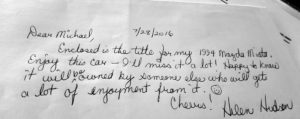 Dear Michael, 7/28/2016
Enclosed is the title for my 1994 Mazda Miata.
Enjoy this car – I'll miss it a lot! Happy to know
it will be owned by someone else who will get
a lot of enjoyment from it. ☺
Cheers! Helen Hudson